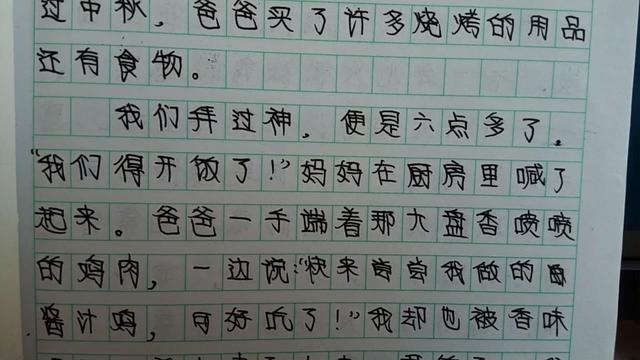 过中秋，爸爸买了许多烧烤的用品
还有食物。
我们拜过神，便是六点多了。
“我们得开饭了！”妈妈在厨房里喊了
起来。爸爸一手端着那大盘香喷喷
的鸡肉，一边说：“快来尝尝我做的
酱汁鸡，可好吃了！”我却也被香味